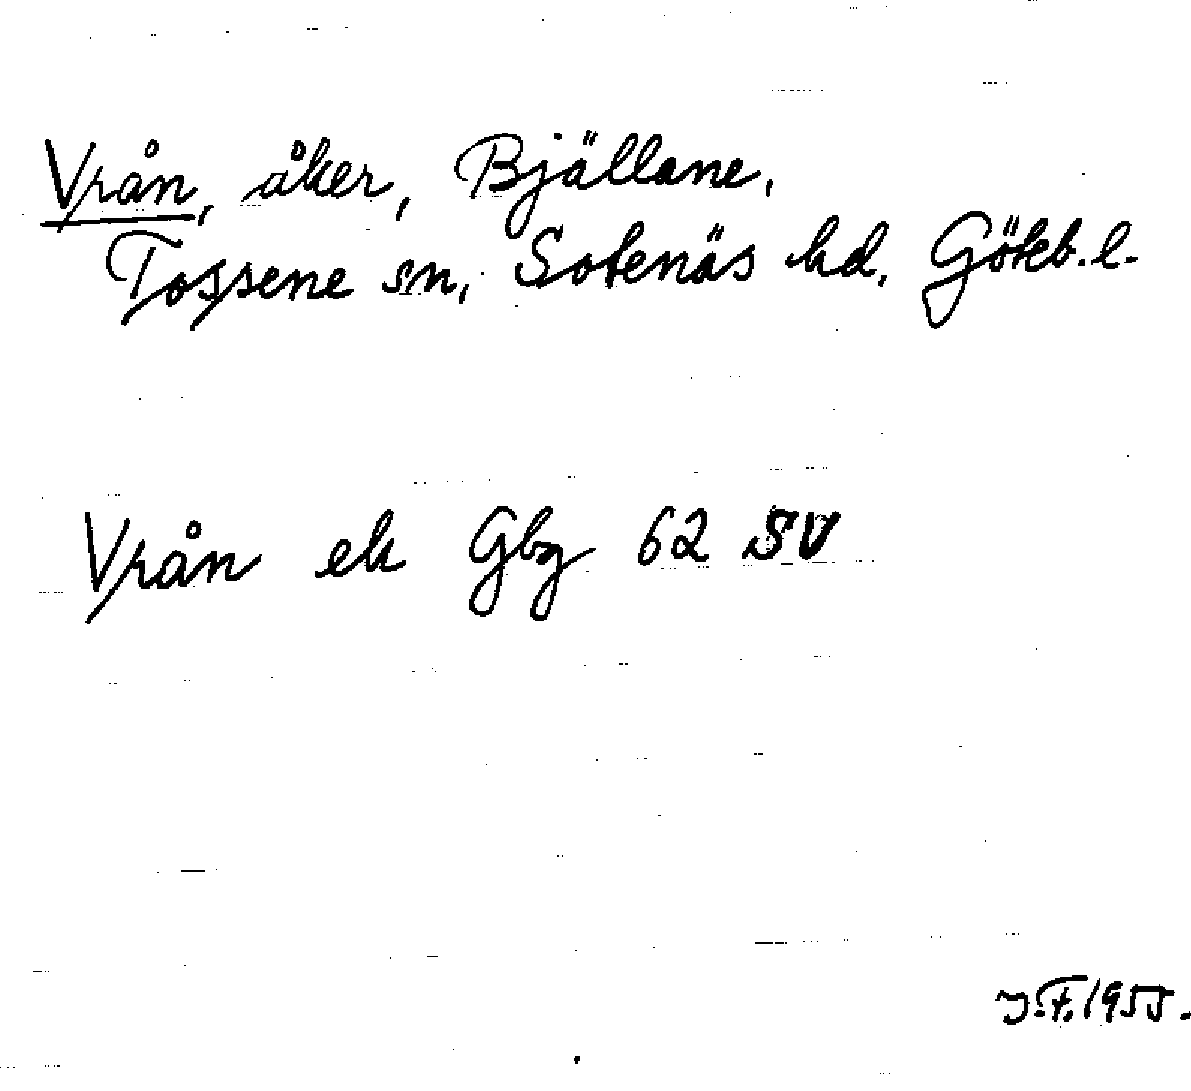 Vrån, åker, Bjällane,
Tossene sn, Sotenäs hd, Göteb. l.
Vrån ek Gbg 62 SV
J.F. 1955.